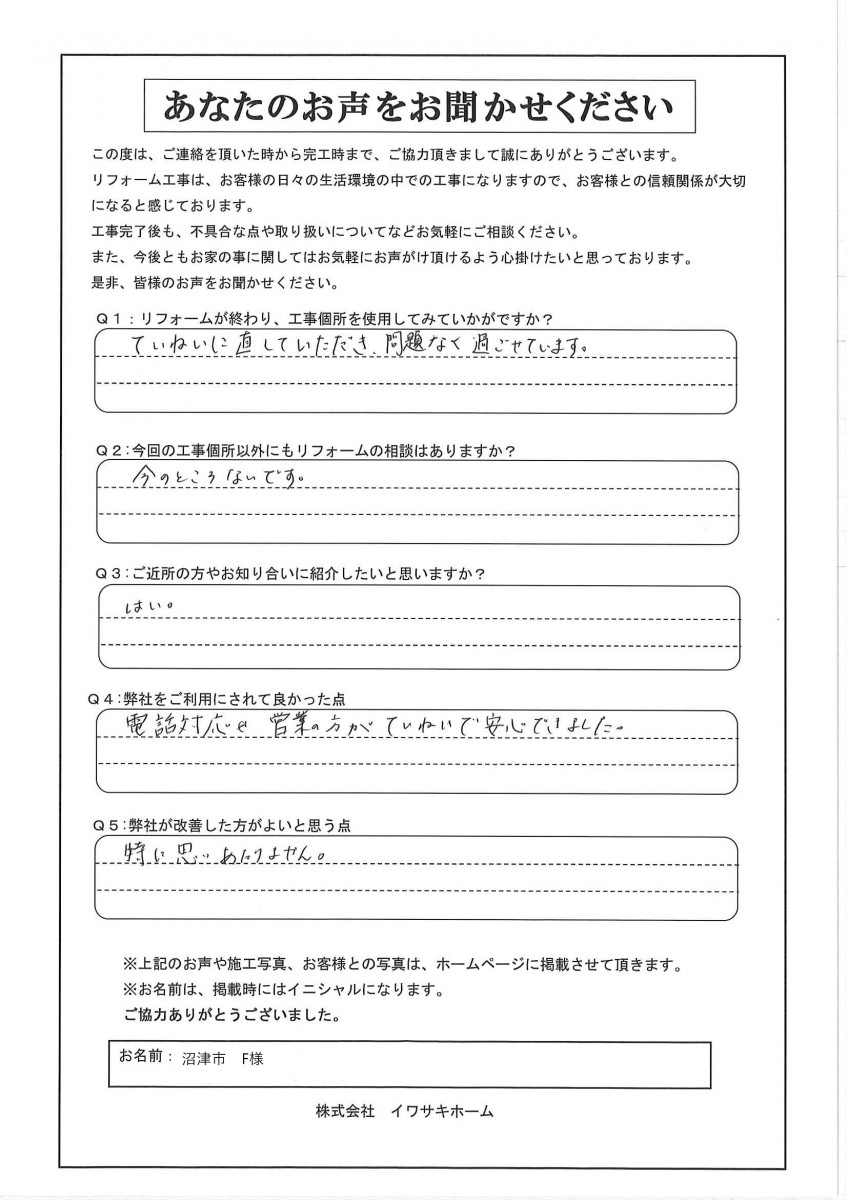 あなたのお声をお聞かせください
この度は、ご連絡を頂いた時から完工時まで、ご協力頂きまして誠にありがとうございます。
リフォーム工事は、お客様の日々の生活環境の中での工事になりますので、お客様との信頼関係が大切
になると感じております。
工事完了後も、不具合な点や取り扱いについてなどお気軽にご相談ください。
また、今後ともお家の事に関してはお気軽にお声がけ頂けるよう心掛けたいと思っております。
是非、皆様のお声をお聞かせください。
Q1：リフォームが終わり、工事個所を使用してみていかがですか？
ていねいに直していただき、問題なく過ごせています。
Q2：今回の工事個所以外にもリフォームの相談はありますか？
今のところないです。
Q3：ご近所の方やお知り合いに紹介したいと思いますか？
はい。
Q4：弊社をご利用にされて良かった点
電話対応や営業の方がていねいで安心できました。
Q5：弊社が改善した方がよいと思う点
特に思いあたりません。
※上記のお声や施工写真、お客様との写真は、ホームページに掲載させて頂きます。
※お名前は、掲載時にはイニシャルになります。
ご協力ありがとうございました。
お名前： 沼津市　F様
株式会社　イワサキホーム